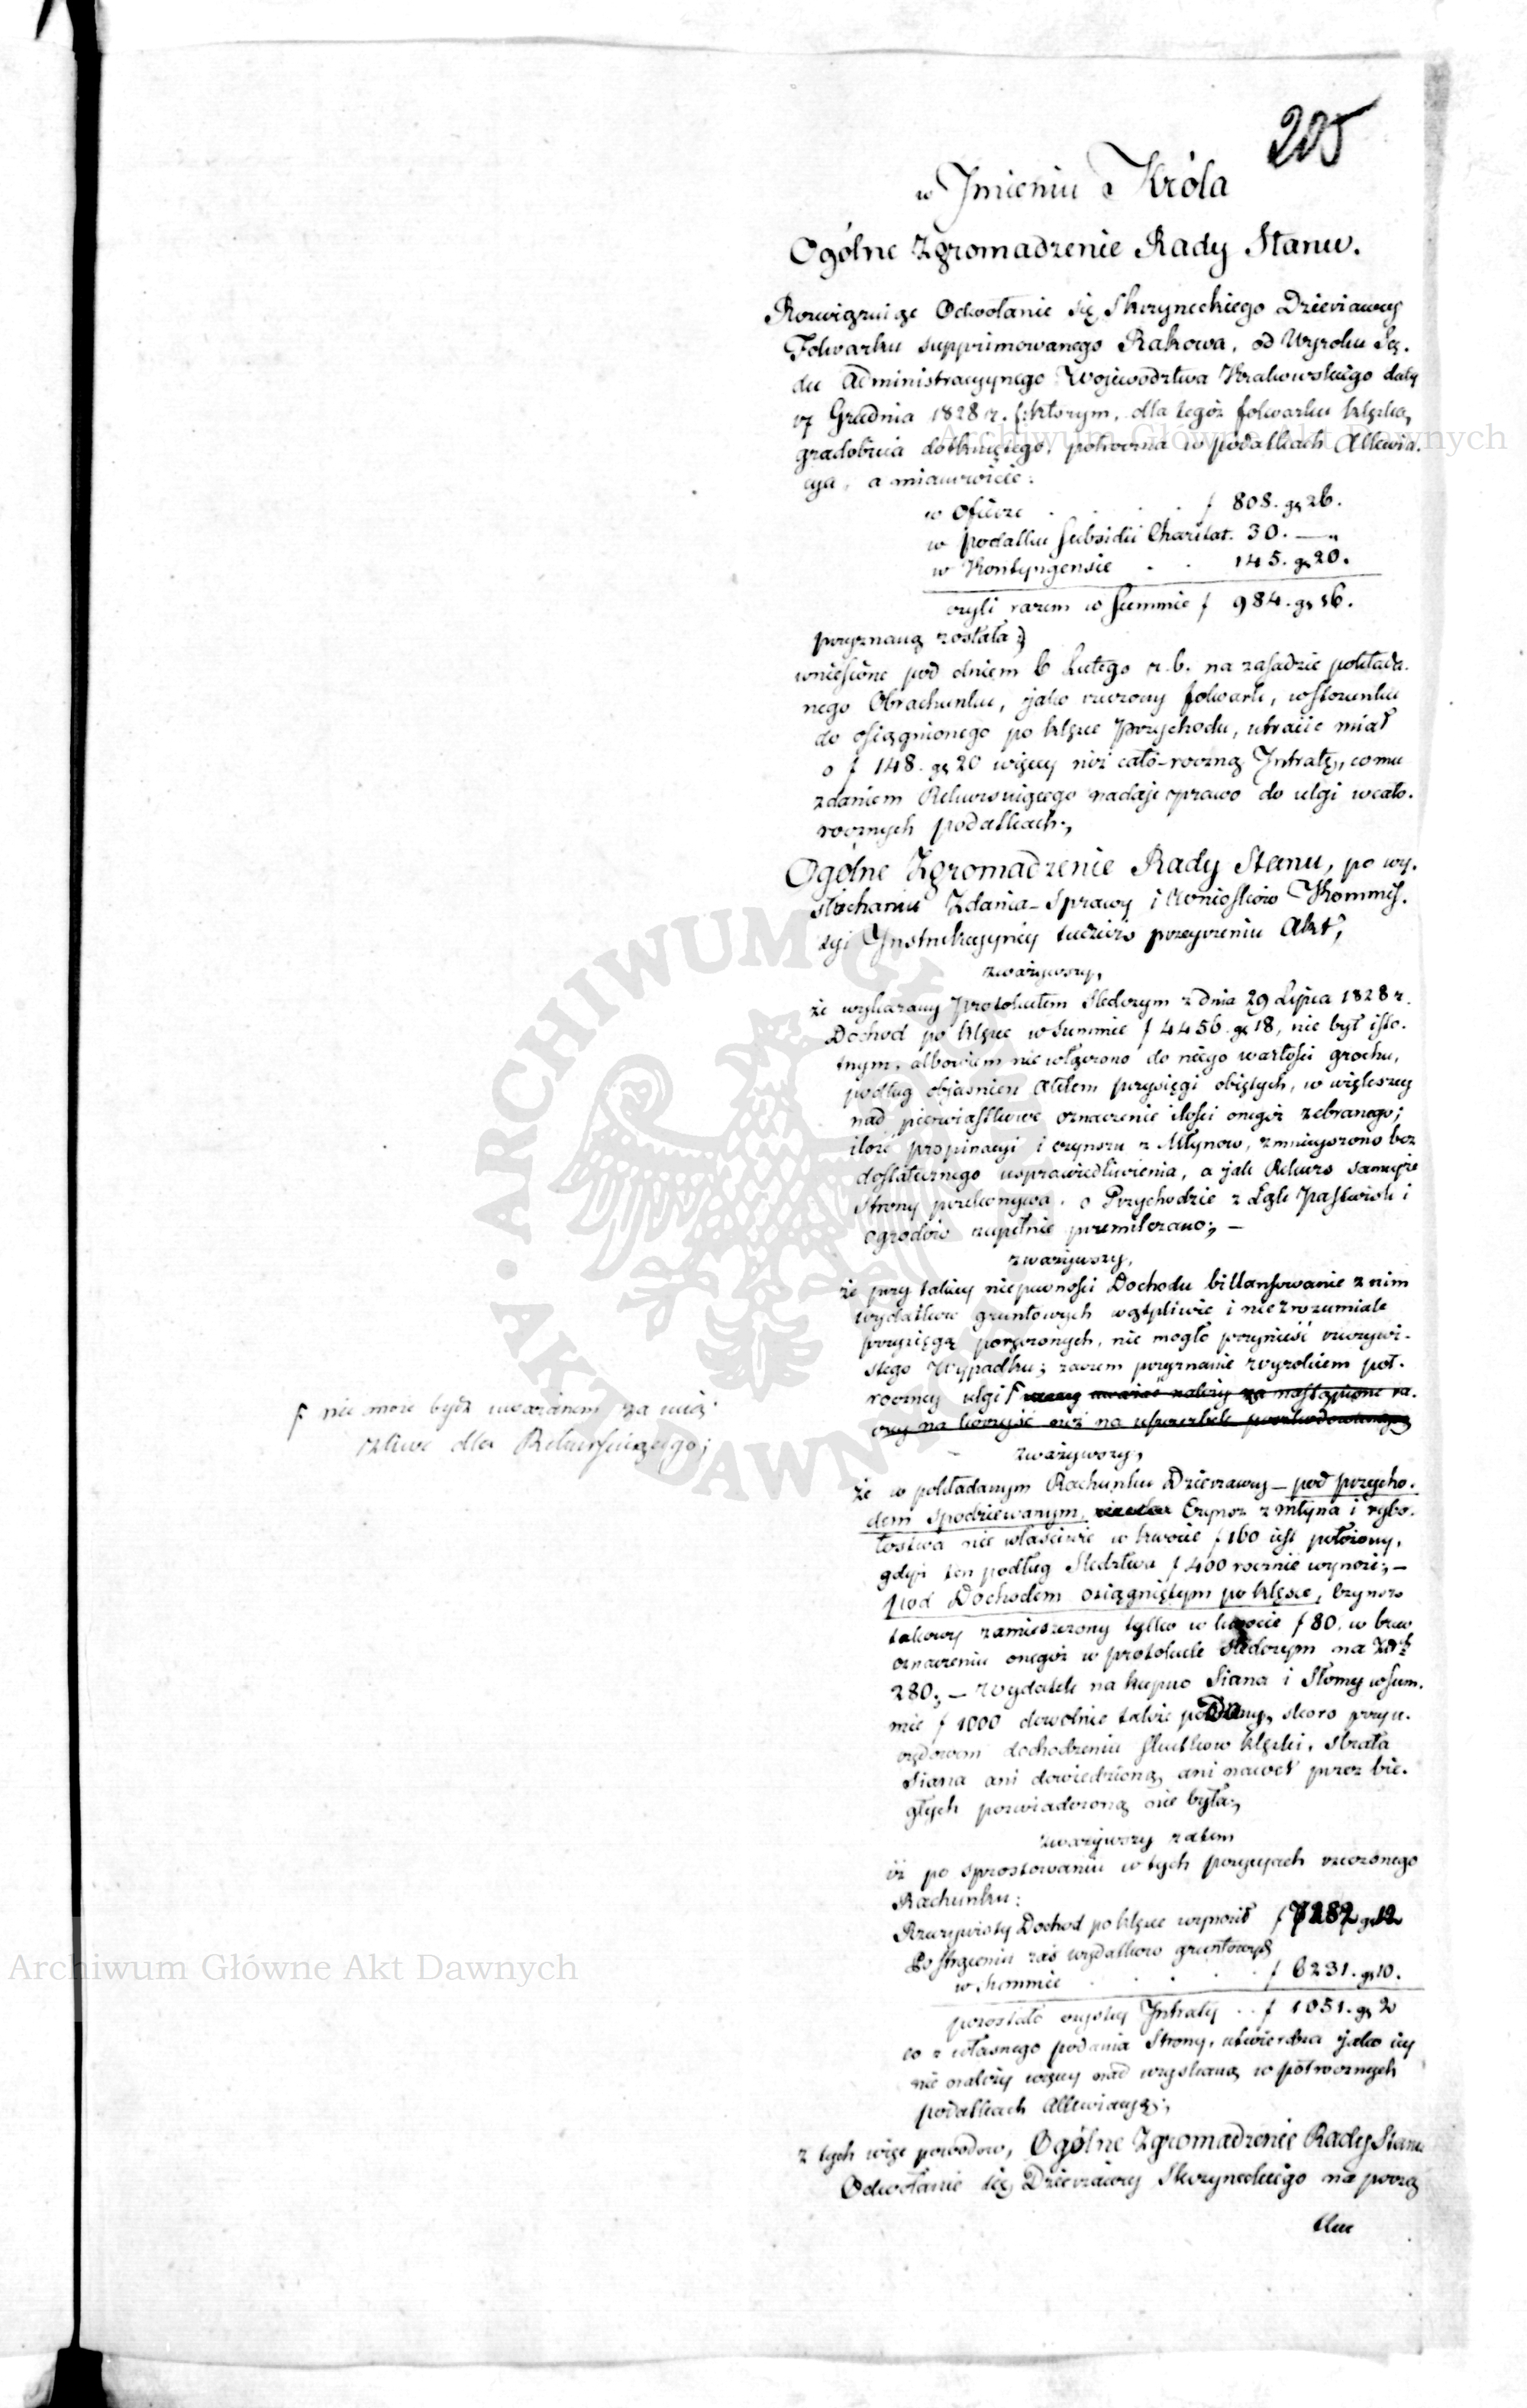 205
w Imieniu Króla
Ogólne Zgromadzenie Rady Stanu.
Rozwiązuiąc Odwołanie się Skrzyneckiego Dzierżawcy
Folwarku supprimowanego Rakowa, od Wyroku Są-
du Administracyjnego Województwa Krakowskiego daty
Grudnia 1828 r. (:którym, dla tegoż folwarku klęską
gradobicia dotkniętego, półroczna w podatkach Allewia-
cya, a mianowicie:
w Ofierze . . . . f 808. gr 26.
w podatku Subsidii Charitat. 30. —„
w Kontyngensie . . 145. gr 20.
czyli razem w Summie f 984. gr 16.
przyznaną została:)
wniesione pod dniem 6 Lutego r. b. na zasadzie pokłada-
nego Obrachunku, jako rzeczony folwark, w stosunku
do osiągnionego po klęsce Przychodu, utracić miał
o f 148. gr 20 więcey niż cało-roczną Intratę, co mu
zdaniem Rekursuiącego nadaje prawo do ulgi w cało-
rocznych podatkach;
Ogólne Zgromadzenie Rady Stanu, po wy-
słuchaniu Zdania-Sprawy i Wniosków Kommis-
syi Instrukcyjney tudzież przeyrzeniu Akt,
zważywszy,
że wykazany Protokułem Śledczym z dnia 29 Lipca 1828 r.
Dochod po klęsce w Summie f 4456. gr 18, nie był isto-
tnym, albowiem nie włączono do niego wartości grochu,
podług objaśnień Aktem przysięgi objętych, w większey
nad pierwiastkowe oznaczenie ilości onegoż zebranego;
ilość propinacyi i czynszu z Młynow, zmnieyszono bez
dostatecznego usprawiedliwienia, a jak Rekurs samejże
Strony przekonywa, o Przychodzie z Łąk Pastwisk i
ogrodów zupełnie przemilczano; —
zważywszy,
że przy takiey niepewności Dochodu billansowanie z nim
wydatkow gruntowych wątpliwie i niezrozumiale
przysięgą poręczonych, nie mogło przynieść rzeczywi-
stego Wypadku; zaczem przyznanie wyrokiem pół-
roczney ulgi F uważać należy za nastąpione ra-
czey na korzyść niż na uszczerbek
F nie może bydź uważanem za uciąż-
liwe dla Rekursuiącego;
zważywszy,
że w pokładanym Rachunku Dzierzawcy — pod przycho-
dem spodziewanym, Czynsz z młyna i rybo-
łostwa nie właściwie w kwocie f 160 iest położony,
gdyż ten podług Śledztwa f 400 rocznie wynosi; —
pod Dochodem osiągniętym po klęsce, Czynsz
takowy zamieszczony tylko w kwocie f 80, w brew
oznaczeniu onegoż w protokule Śledczym na Złth
280; — Wydatek na kupno Siana i Słomy w Sum-
mie f 1000 dowolnie także podany, skoro przy u-
rzędowem dochodzeniu skutkow klęski, strata
Siana ani dowiedzioną, ani nawet przez bie-
głych poswiadczoną nie była;
zważywszy zatem
iż po sprostowaniu w tych pozycyach rzeczonego
Rachunku:
Rzeczywisty Dochod po klęsce wynosił f 7282 gr 12
Po strąceniu zaś wydatkow gruntowych
w Summie . . . . f 6231. gr 10.
pozostało czystey Intraty . . f 1051. gr 2
co z własnego podania Strony, utwierdza jako iey
nie należy więcey nad uzyskaną w półrocznych
podatkach Allewiacyą;
z tych więc powodow, Ogólne Zgromadzenie Rady Stanu
Odwołanie się Dzierzawcy Skrzyneckiego na porzą
tku
Archiwum Główne Akt Dawnych
Archiwum Główne Akt Dawnych
ARCHIWUM GŁÓWNE • AKT DAWNYCH •